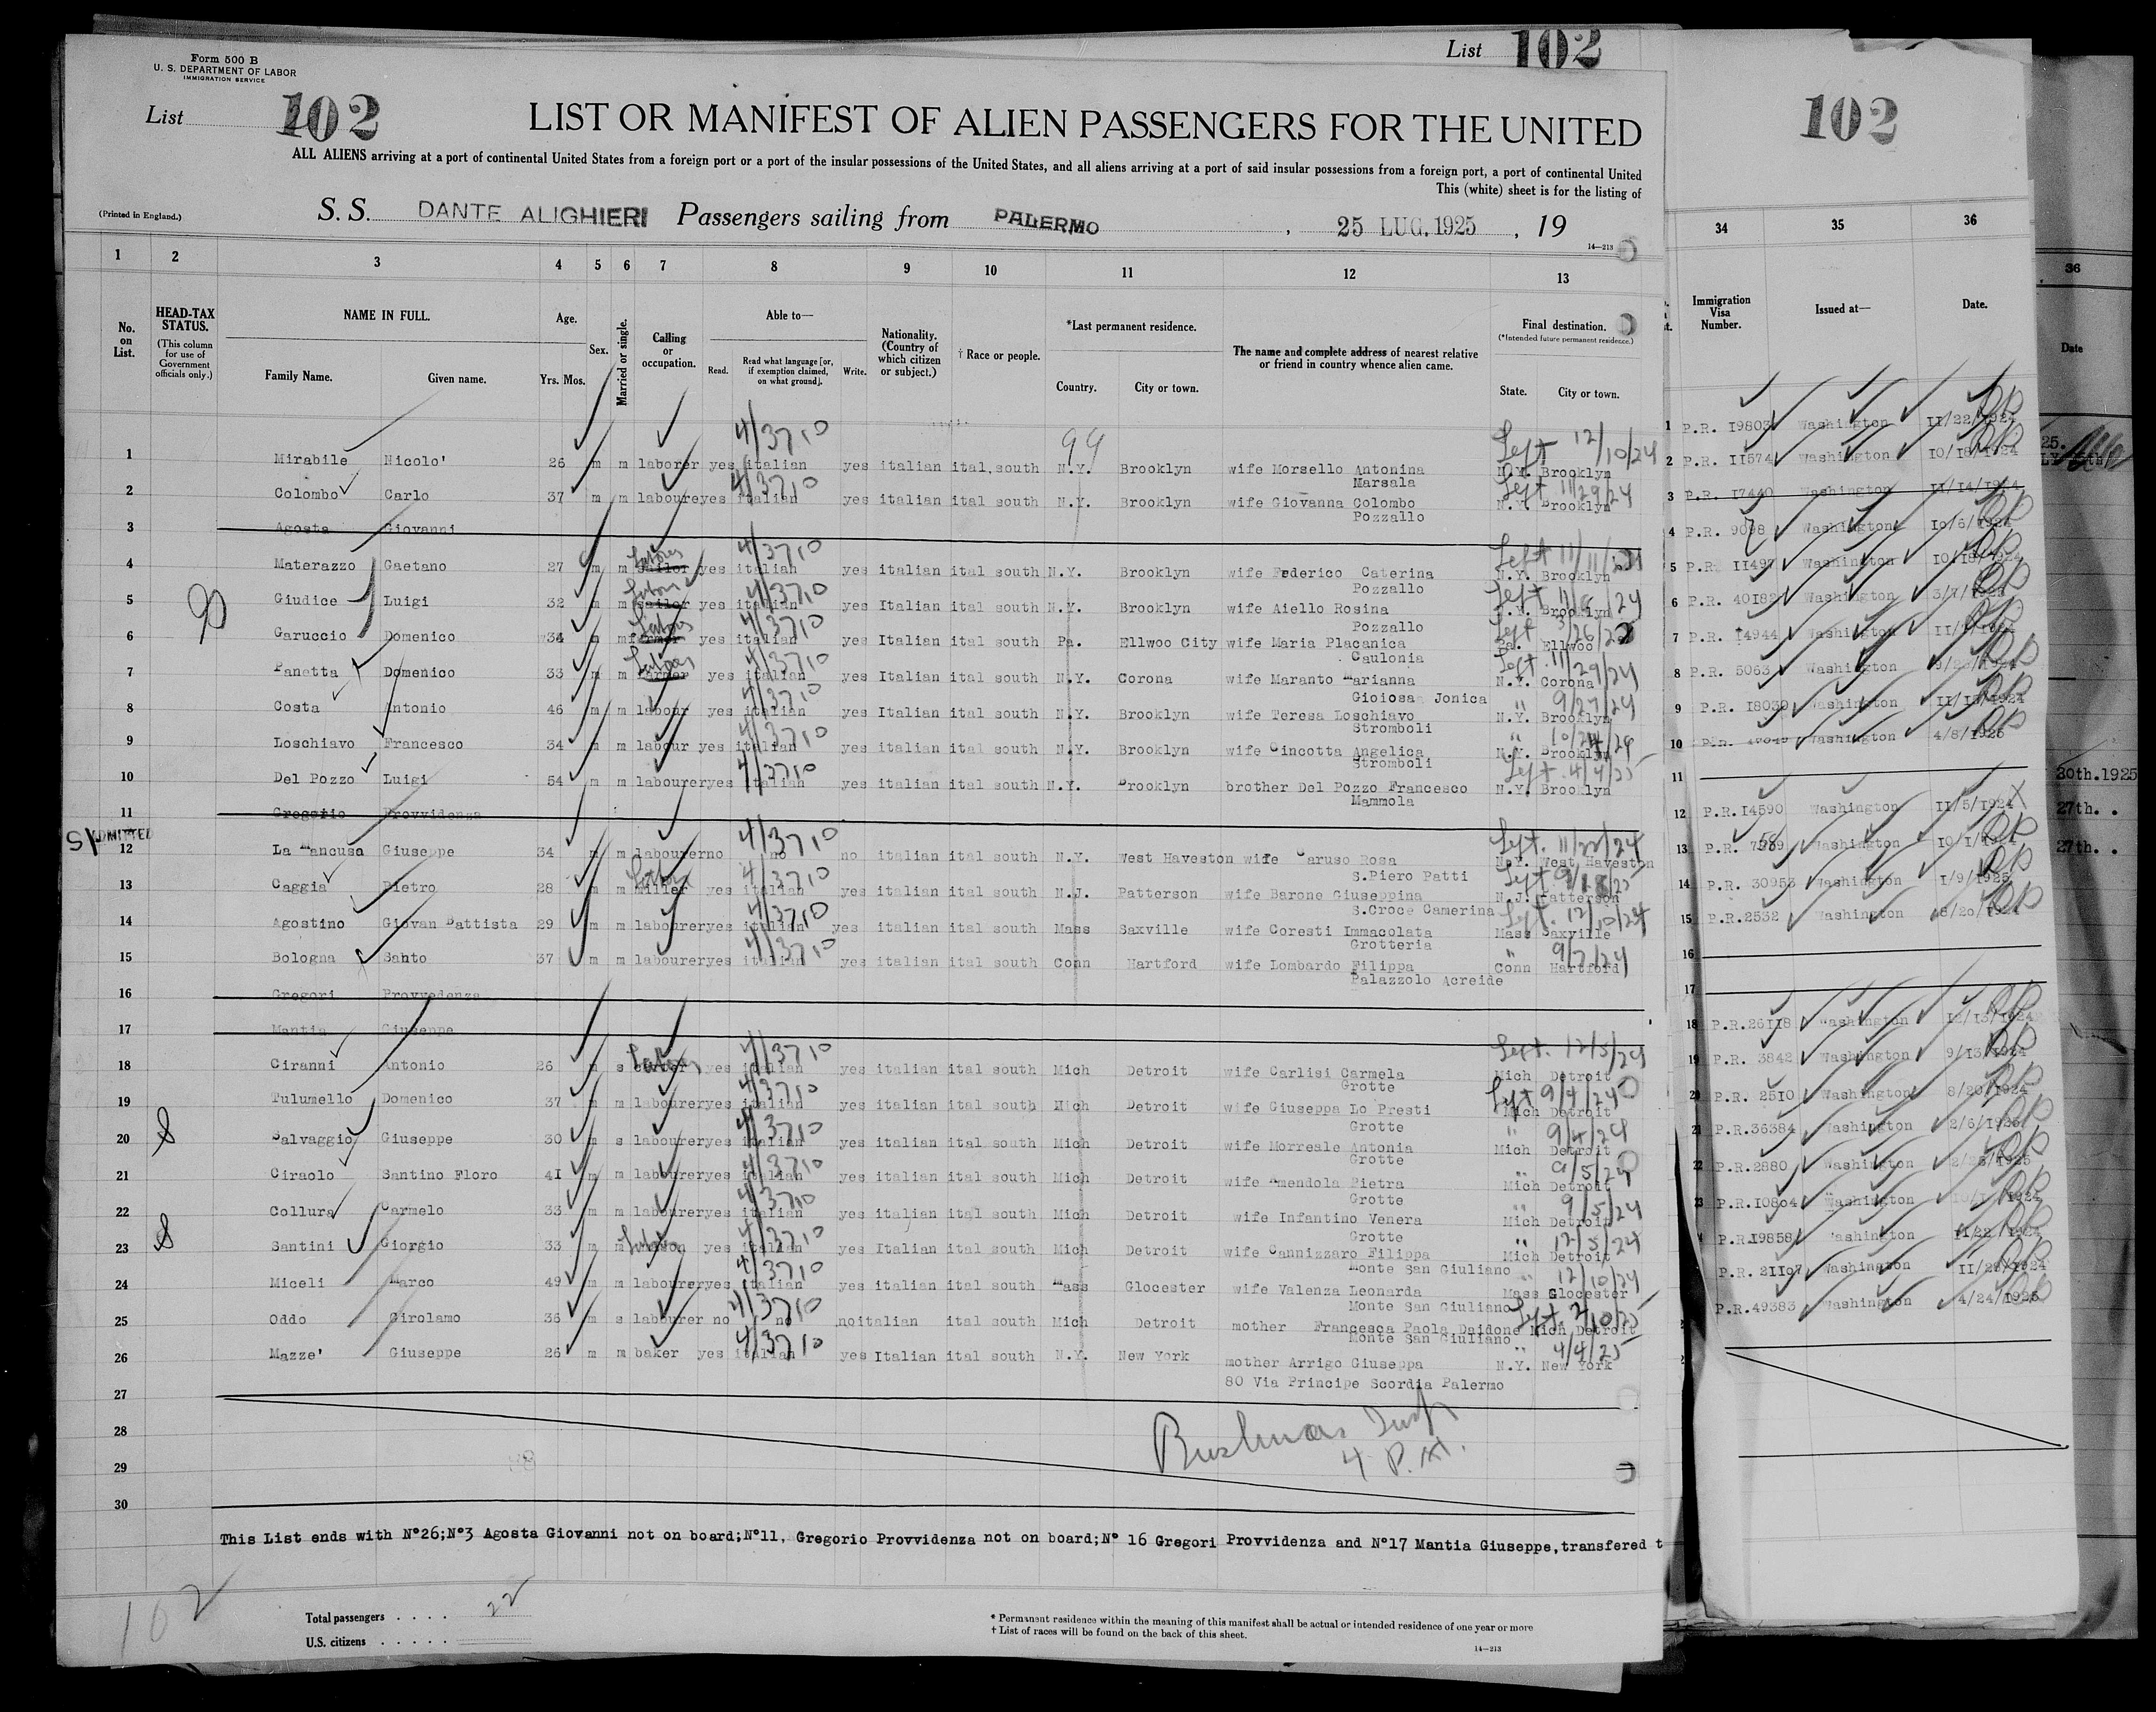 Form 500 B
U. S. DEPARTMENT OF LABOR
IMMIGRATION SERVICE
List 102
List 102
102
LIST OR MANIFEST OF ALIEN PASSENGERS FOR THE UNITED
ALL ALIENS arriving at a port of continental United States from a foreign port or a port of the insular possessions of the United States, and all aliens arriving at a port of said insular possessions from a foreign port, a port of continental United
This (white) sheet is for the listing of
(Printed in England.)
S. S. DANTE ALIGHIERI Passengers sailing from PALERMO , 25 LUG. 1925 , 19
14—213
1 2 3 4 5 6 7 8 9 10 11 12 13 34 35 36
36
No. on List.
HEAD-TAX STATUS.
(This column for use of Government officials only.)
NAME IN FULL.
Family Name. Given name.
Age.
Yrs. Mos.
Sex.
Married or single.
Calling or occupation.
Able to—
Read. Read what language [or, if exemption claimed, on what ground]. Write.
Nationality. (Country of which citizen or subject.)
† Race or people.
*Last permanent residence.
Country. City or town.
The name and complete address of nearest relative or friend in country whence alien came.
Final destination.
(*Intended future permanent residence.)
State. City or town.
Immigration Visa Number.
Issued at—
Date.
Date
99
4/3710 Left 12/10/24
1 Mirabile Nicolo' 26 m m laborer yes italian yes italian ital.south N.Y. Brooklyn wife Morsello Antonina N.Y. Brooklyn
Marsala
4/3710 Left 11/29/24
2 Colombo Carlo 37 m m laboureyes italian yes italian ital south N.Y. Brooklyn wife Giovanna Colombo N.Y. Brooklyn
Pozzallo
3 Agosta Giovanni
4/3710 Left 11/11/24
4 Materazzo Gaetano 27 m m sailor yes italian yes italian ital south N.Y. Brooklyn wife Federico Caterina N.Y. Brooklyn
Pozzallo
4/3710
5 Giudice Luigi 32 m m sailor yes italian yes Italian ital south N.Y. Brooklyn wife Aiello Rosina N.Y. Brooklyn
Pozzallo
4/3710
6 Garuccio Domenico 34 m m farmer yes italian yes Italian ital south Pa. Ellwoo City wife Maria Placanica Pa. Ellwoo
Caulonia
4/3710 Left 11/29/24
7 Panetta Domenico 33 m m farmer yes italian yes Italian ital south N.Y. Corona wife Maranto Marianna N.Y. Corona
Gioiosa Jonica
4/3710 " 9/27/24
8 Costa Antonio 46 m m labour yes italian yes Italian ital south N.Y. Brooklyn wife Teresa Loschiavo N.Y. Brooklyn
Stromboli
4/3710
9 Loschiavo Francesco 34 m m labour yes italian yes italian ital south N.Y. Brooklyn wife Cincotta Angelica N.Y. Brooklyn
Stromboli
4/3710 Left 4/4/25
10 Del Pozzo Luigi 54 m m laboureryes italian yes italian ital south N.Y. Brooklyn brother Del Pozzo Francesco N.Y. Brooklyn
Mammola
11 Gregorio Provvidenza
ADMITTED
4/3710 Left. 11/22/24
12 La Mancusa Giuseppe 34 m m labourerno no no italian ital south N.Y. West Haveston wife Caruso Rosa N.Y. West Haveston
S.Piero Patti
4/3710
13 Caggia Pietro 28 m m miller yes italian yes italian ital south N.J. Patterson wife Barone Giuseppina N.J. Patterson
S.Croce Camerina
4/3710 Left. 12/10/24
14 Agostino Giovan Battista 29 m m laboureryes italian yes italian ital south Mass Saxville wife Coresti Immacolata Mass Saxville
Grotteria
4/3710 " 9/7/24
15 Bologna Santo 37 m m laboureryes italian yes italian ital south Conn Hartford wife Lombardo Filippa Conn Hartford
Palazzolo Acreide
16 Gregori Provvedenza
17 Mantia Giuseppe
4/3710 Left. 12/5/24
18 Ciranni Antonio 26 m s yes italian yes italian ital south Mich Detroit wife Carlisi Carmela Mich Detroit
Grotte
4/3710 Left 9/4/24
19 Tulumello Domenico 37 m m laboureryes italian yes italian ital south Mich Detroit wife Giuseppa Lo Presti Mich Detroit
Grotte
4/3710 " 9/4/24
20 Salvaggio Giuseppe 30 m s laboureryes italian yes italian ital south Mich Detroit wife Morreale Antonia Mich Detroit
Grotte
4/3710 " 9/5/24
21 Ciraolo Santino Floro 41 m m laboureryes italian yes italian ital south Mich Detroit wife Amendola Pietra Mich Detroit
Grotte
4/3710 " 9/5/24
22 Collura Carmelo 33 m m laboureryes italian yes italian ital south Mich Detroit wife Infantino Venera Mich Detroit
Grotte
4/3710 " 12/5/24
23 Santini Giorgio 33 m m yes italian yes Italian ital south Mich Detroit wife Cannizzaro Filippa Mich Detroit
Monte San Giuliano
4/3710 " 12/10/24
24 Miceli Marco 49 m m laboureryes italian yes italian ital south Mass Glocester wife Valenza Leonarda Mass Glocester
Monte San Giuliano
4/3710
25 Oddo Girolamo 36 m s labourer no no noitalian ital south Mich Detroit mother Francesca Paola Daidone Mich Detroit
Monte San Giuliano
4/3710 " 4/4/25
26 Mazze' Giuseppe 26 m m baker yes italian yes Italian ital south N.Y. New York mother Arrigo Giuseppa N.Y. New York
80 Via Principe Scordia Palermo
27
28
29
30
This List ends with N°26;N°3 Agosta Giovanni not on board;N°11, Gregorio Provvidenza not on board;N° 16 Gregori Provvidenza and N°17 Mantia Giuseppe,transfered t
102
Total passengers . . . . 22
U.S. citizens . . . . .
* Permanent residence within the meaning of this manifest shall be actual or intended residence of one year or more
† List of races will be found on the back of this sheet.
14—213
1 P.R. 19803 Washington 11/22/1924
2 P.R. 11574 Washington 10/18/1924
3 P.R. 17440 Washington 11/14/1924
4 P.R. 9098 Washington 10/6/1924
5 P.R. 11497 Washington 10/18/1924
6 P.R. 40182 Washington
7 P.R. 14944 Washington
8 P.R. 5063 Washington
9 P.R. 18039 Washington
10 P.R. Washington 4/8/1925
11
12 P.R.14590 Washington 11/5/1924
13 P.R. Washington 10/1/1924
14 P.R. 30953 Washington 1/9/1925
15 P.R.2532 Washington 8/20/1924
16
17
18 P.R.26118 Washington 12/13/1924
19 P.R. 3842 Washington 9/13/1924
20 P.R. 2510 Washington 8/20/1924
21 P.R.36384 Washington 2/6/1925
22 P.R.2880 Washington
23 P.R.10804 Washington
P.R.19858 Washington 11/22/1924
P.R. 21107 Washington 11/28/1924
P.R.49383 Washington 4/24/1925
30th.1925
27th. .
27th. .